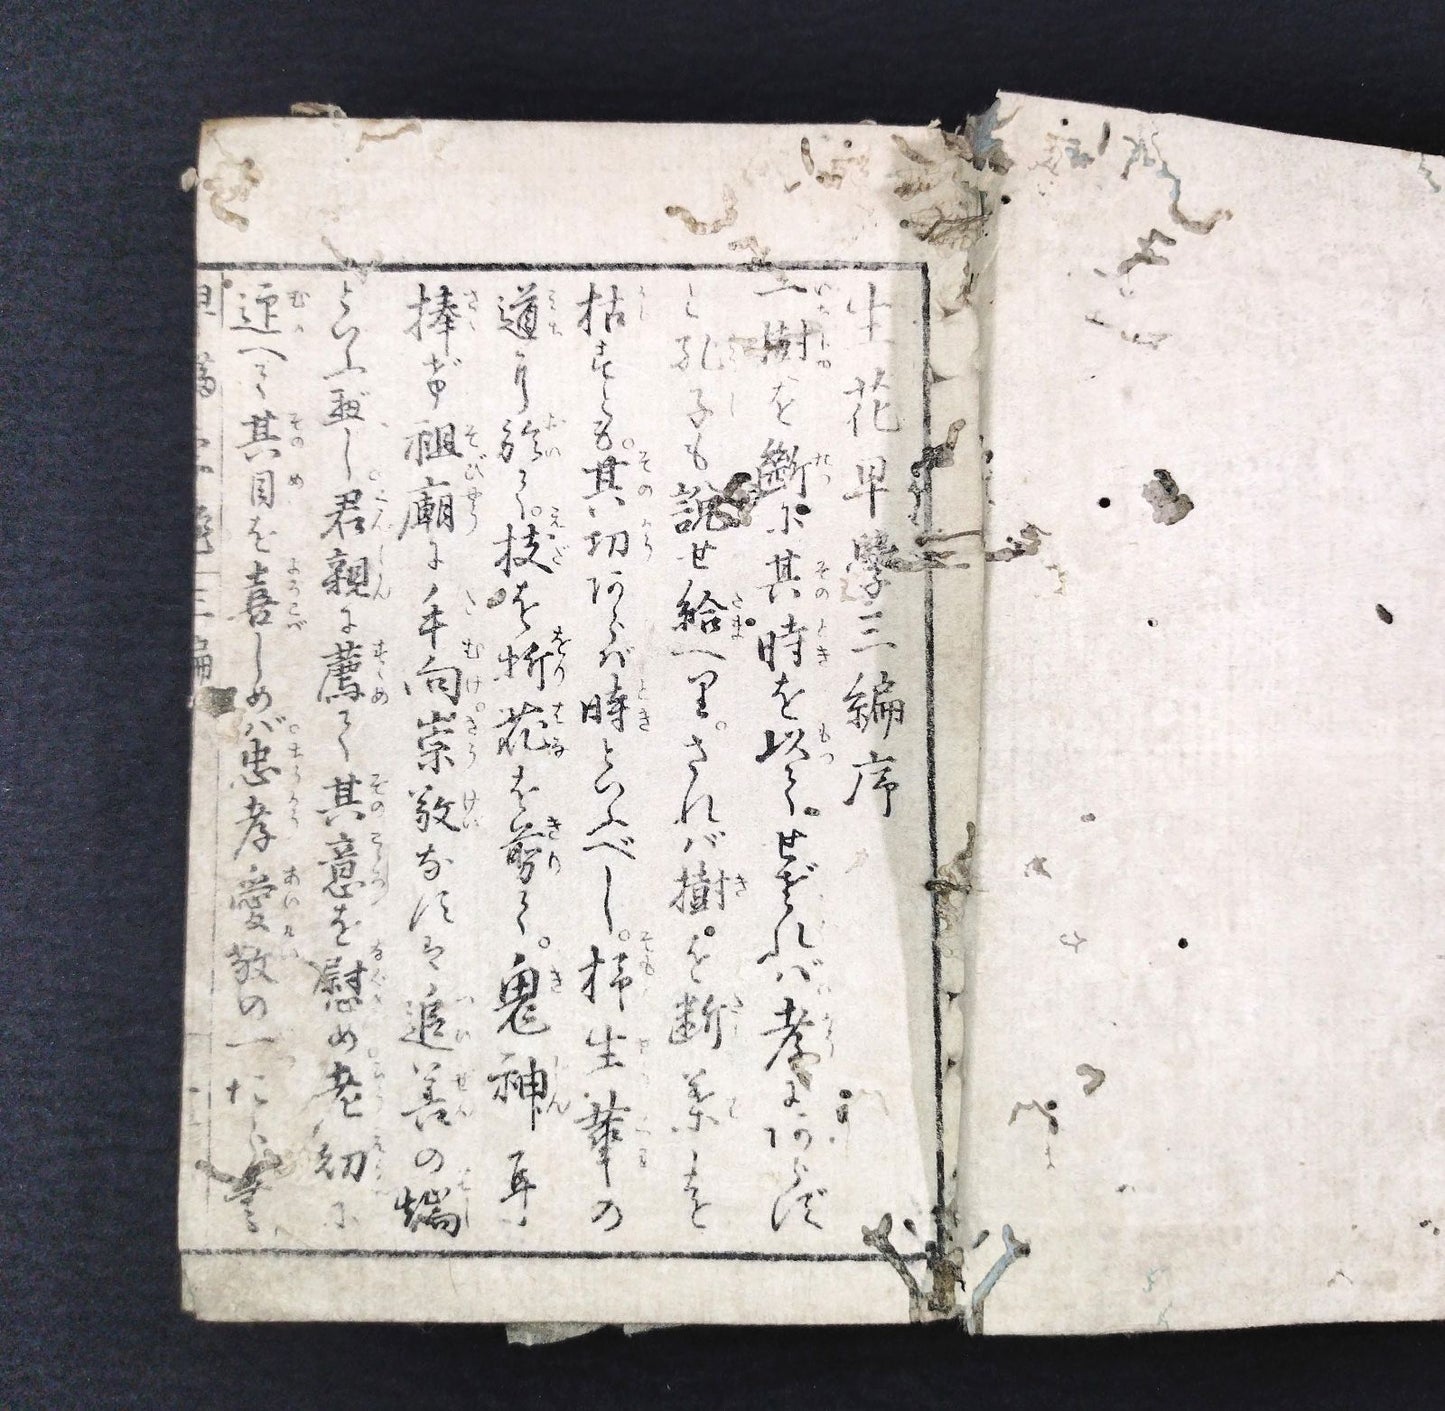 生花早學三編序
一樹を斷に其時を以てせざれバ孝にあらず
と孔子も説せ給へり。されバ樹を断葉を
枯すとも。其切あらバ時といふべし。抑生華の
道に於る。枝を折花を剪て。鬼神に
捧げ祖廟に手向崇敬なすハ追善の端
といふ可し君親に薦て其意を慰め老幼に
迎へて其目を喜しめバ忠孝愛敬の一たらん